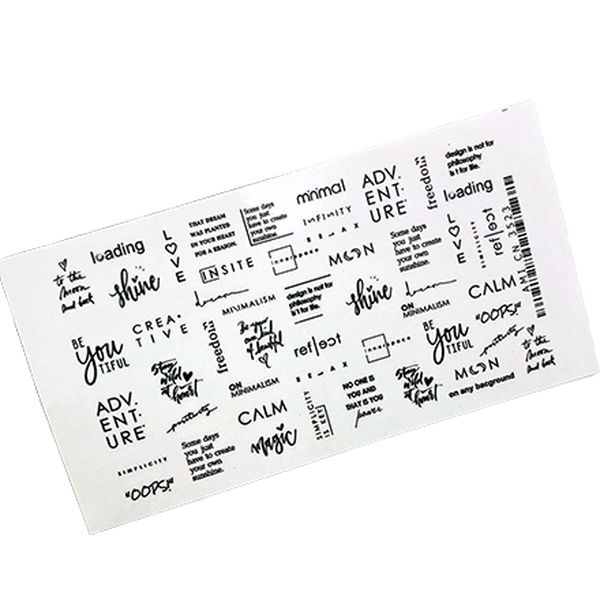 to the
moon
and back
loading
THAT DREAM
WAS PLANTED
IN YOUR HEART
FOR A REASON.
Some days
you just
have to create
your own
sunshine.
minimal
ADV.
ENT.
URE
freedom
design is not for
philosophy
is t for life.
loading
L
O
V
E
shine
INSITE
INFINITY
RELAX
MOON
Some days
you just
have to create
own
sunshine.
L
O
V
E
SIMPLICITY
reflect
AMI CN 3529
BE
you
TIFUL
CREA-
TIVE
freedom
dream
MINIMALISM
Be your
own kind
of beautiful
design is not for
philosophy
is t for life.
shine
ON
MINIMALISM
CALM
"OOPS!"
BE
you
TIFUL
positivity
to the
moon
and back
ADV.
ENT.
URE
stay
wild
at heart
positivity
ON
MINIMALISM
reflect
RELAX
inner space
MOON
on any bacground
SIMPLICITY
"OOPS!"
Some days
you just
have to create
your own
sunshine.
CALM
magic
SIMPLICITY
NO ONE IS
YOU AND
THAT IS YOU
power
stay
wild
at heart